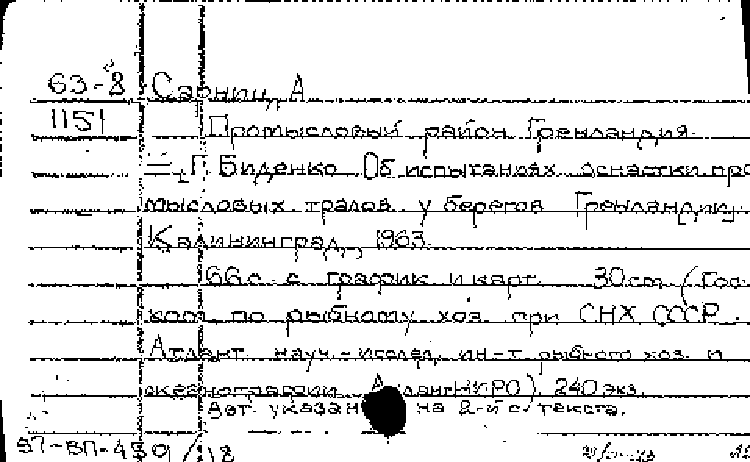 63-8 Сарнищ, А
1151 Промысловый район Гренландия
Г. Биденко. Об испытаниях оснастки про
мысловых тралов у берегов Гренландии.
Калининград, 1963
66 с. с график и карт. 30 см (Гос.
ком по рыбному хоз. при СНХ СССР.
Атлант. науч.-исслед. ин-т рыбного хоз. и
океанографии АтлантНИРО). 240 экз.
Авт. указан на 2-й с. текста.
57-ВП-450/118